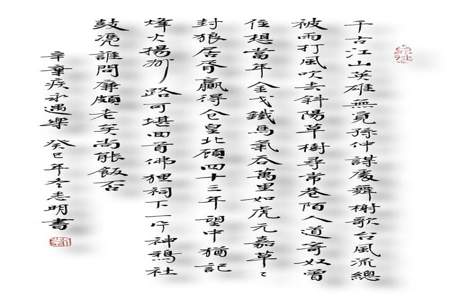 千古江山英雄無覓孫仲謀處舞榭歌台風流總
被雨打風吹去斜陽草樹尋常巷陌人道寄奴曾
住想當年金戈鐵馬氣吞萬里如虎元嘉草々
封狼居胥贏得倉皇北顧四十三年望中猶記
烽火揚州路可堪回首佛狸祠下一片神鴉社
鼓憑誰問廉頗老矣尚能飯否
辛棄疾永遇樂 癸巳年左志明書